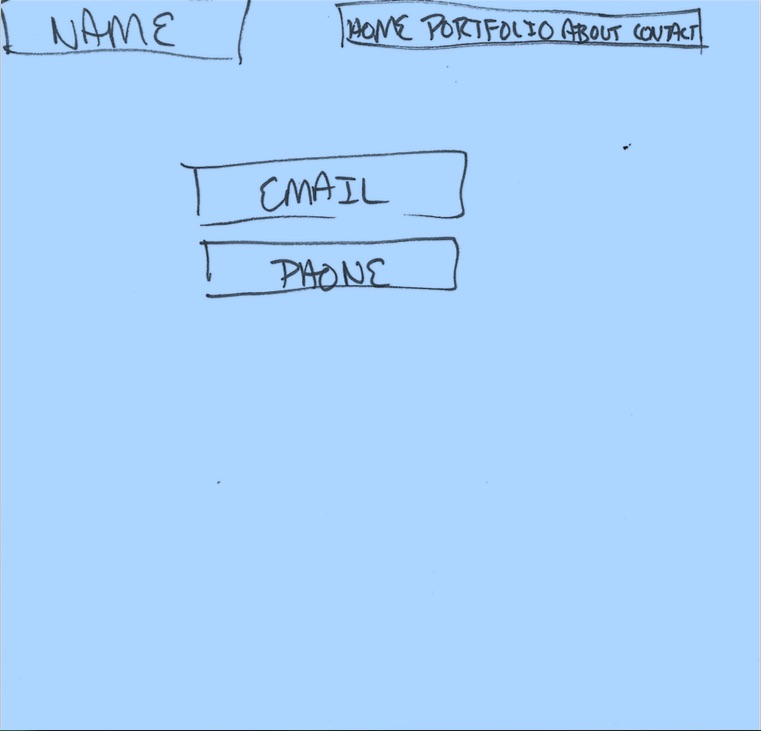 NAME
HOME PORTFOLIO ABOUT CONTACT
EMAIL
PHONE